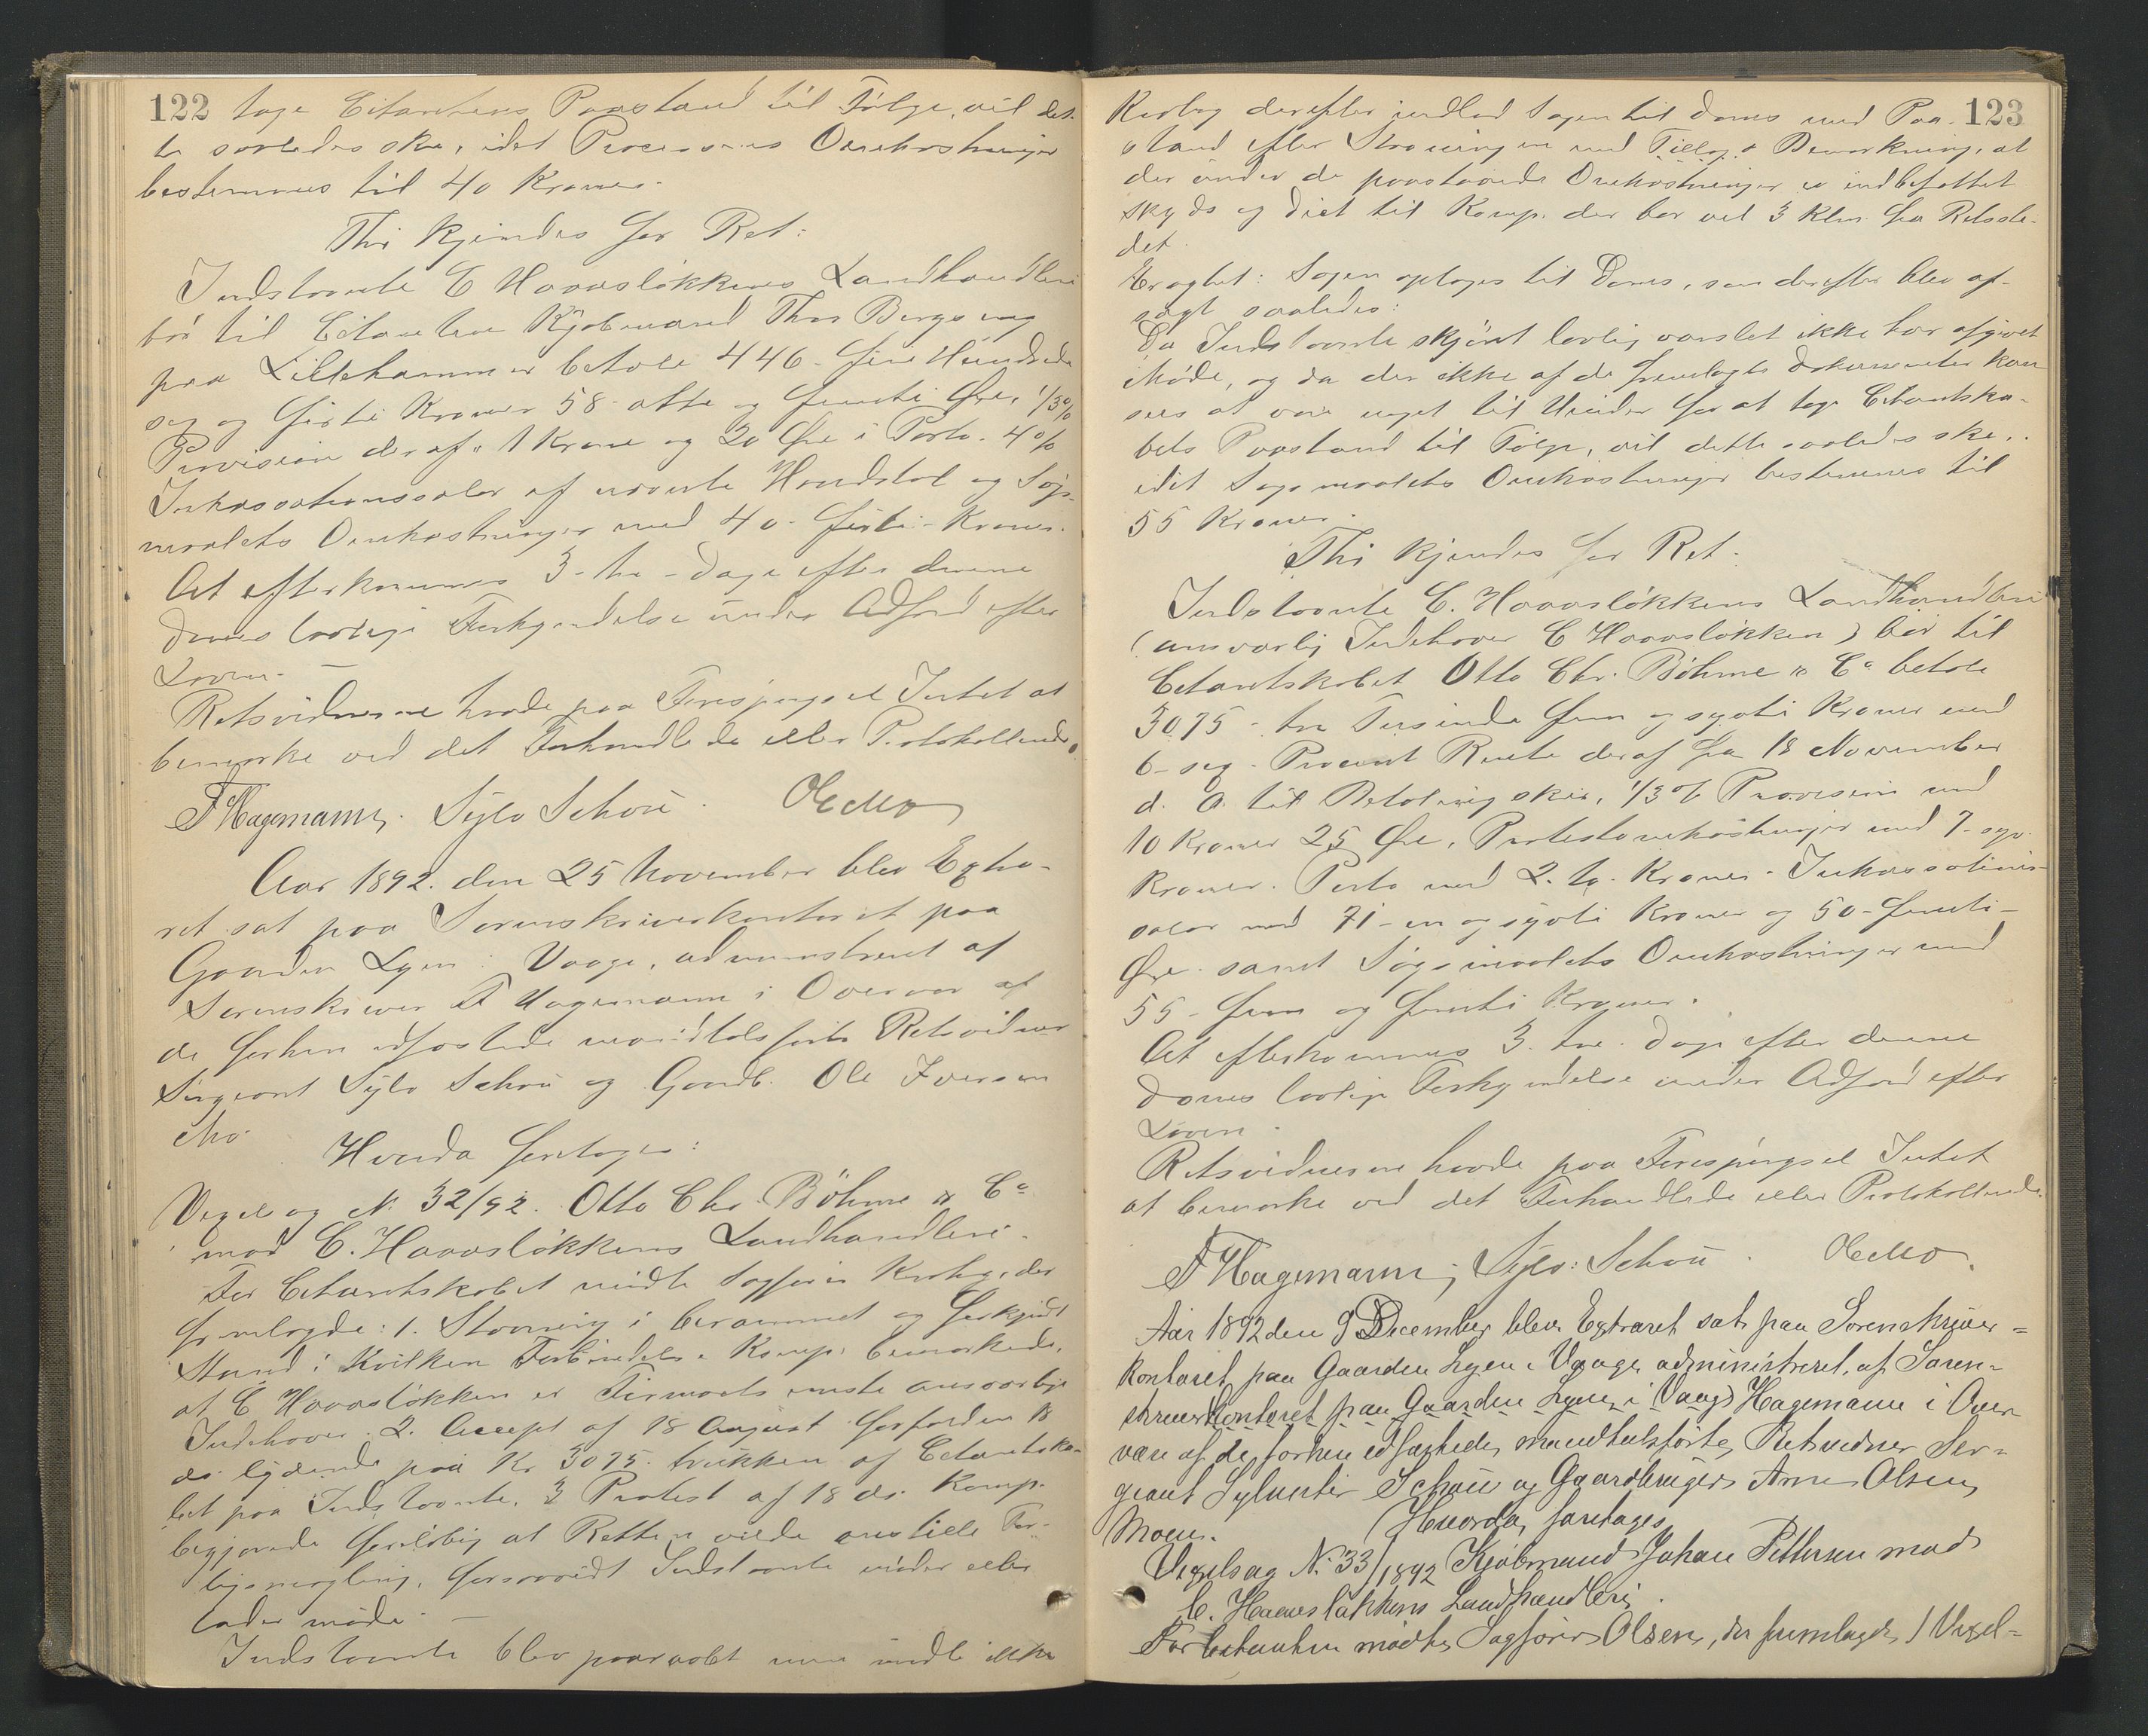 122 tage Citantens Paastand til Følge, vil det-
te saaledes ske, idet Processens Omkostninger
bestemmes til 40 Kroner.
Thi kjendes for Ret:
Indstævnte C Haavsløkkens Landhandleri
bør til Citanten Kjøbmand Thor Bergseng
paa Lillehammer betale 446 - fire Hundrede
seg og førti Kroner 58 - otte og femti Øre, 1/3 %
Provision deraf, 1 Krone og 20 Øre i Porto. 4 %
Inkassationssalær af nævnte Hovdstol og Søgs-
maalets Omkostninger med 40 - førti - Kroner.
At efterkommes 3 - tre - Dage efter denne
Doms lovlige Forkyndelse under Adfærd efter
Loven. -
Retsvidnerne havde paa Forespørgsel Intet at
bemærke ved det Forhandlede eller Protokollerede.
F Hagemann. Sylv Schou. OleMo
Aar 1892. den 25 November blev Extra-
ret sat paa Sorenskriverkontoret paa
Gaarden Lyen i Vaage, administreret af
Sorenskriver F Hagemann i Overvær af
de forhen edfæstede mandtalsførte Retsvidner
Sergeant Sylv Schou og Gaardb. Ole Iversen
Mo.
Hvorda foretoges:
Vexelsag N. 32/92. Otto Chr. Böhme & Co
mod C. Haavsløkkens Landhandleri.
For Citantskabet mødte Sagfører Korbøg, der
fremlagde: 1. Stævning i berammet og forkyndt
Stand i hvilken Forbindelse Komp. bemærkede,
at C Haavsløkken er Firmaets eneste ansvarlige
Indehaver. 2. Accept af 18 August forfalden 18
ds. lydende paa Kr 3075. trukken af Citantska-
bet paa Indstævnte. 3 Protest af 18 ds. Komp.
begjærede foreløbig at Retten vilde anstille For-
ligsmægling, forsaavidt Indstævnte møder eller
lader møde. -
Indstævnte blev paaraabt men mødte ikke
123
Korbøg derefter indlod Sagen til Doms med Paa-
stand efter Stævningen med Tillæg & Bemærkning, at
der under de paastaaede Omkostninger er indbefattet
Skyds og Diæt til Komp. der bor vel 3 Klm. fra Retsste-
det.
Eragtet: Sagen optages til Doms, som derefter blev af-
sagt saaledes:
Da Indstævnte skjønt lovlig varslet ikke har afgivet
Møde, og da der ikke af de fremlagte Dokumenter kan
sees at være noget til Hinder for at tage Citantska-
bets Paastand til Følge, vil dette saaledes ske,
idet Søgsmaalets Omkostninger bestemmes til
55 Kroner.
Thi kjendes for Ret.
Indstævnte C. Haavsløkkens Landhandleri
(ansvarlig Indehaver C Haavsløkken) bør til
Citantskabet Otto Chr. Böhme & Co betale
3075 - tre Tusinde fem og sytti Kroner med
6 - seg - Procent Rente deraf fra 18 November
d. A. til Betaling sker, 1/3 % Provision med
10 Kroner 25 Øre, Protestomkostninger med 7 - syv
Kroner. Porto med 2. to. Kroner. Inkassations-
salær med 71 - en og sytti Kroner og 50 - femti -
Øre. samt Søgsmaalets Omkostninger med
55 - fem og femti Kroner.
At efterkommes 3. tre. Dage efter denne
Doms lovlige Forkyndelse under Adfærd efter
Loven.
Retsvidnerne havde paa Forespørgsel Intet
at bemærke ved det Forhandlede eller Protokollerede.
F Hagemann, Sylv: Schou. OleMo.
Aar 1892 den 9 December blev Extraret sat paa Sorenskriver=
kontoret paa Gaarden Lyen i Vaage, administreret af Soren-
skriverkontoret paa Gaarden Lyen i Vaage Hagemann i Over
være af de forhen edfæstede, mandtalsførte, Retsvidner Ser=
geant Sylvester Schou og Gaardbruger Arne Olsen
Moen.
Hvorda, foretages
Vexelsag N. 33/1892 Kjøbmand Johan Pettersen mod
C. Haavsløkkens Landhandleri.
For Citanten mødte Sagfører Olsen, der fremlagde, 1 Vexel=